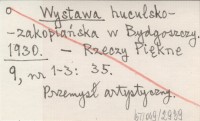 o Wystawa huculsko-
-zakopiańska w Bydgoszczy.
1930. - Rzeczy Piękne
9, nr 1-3: 35.
Przemysł artystyczny.
/2939